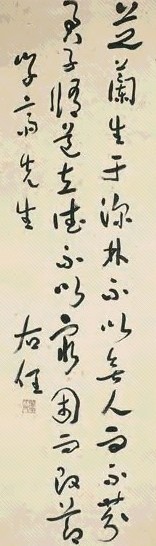 芝蘭生于深林不以無人而不芬
君子脩道立德不以窮困而改節
學高先生
右任